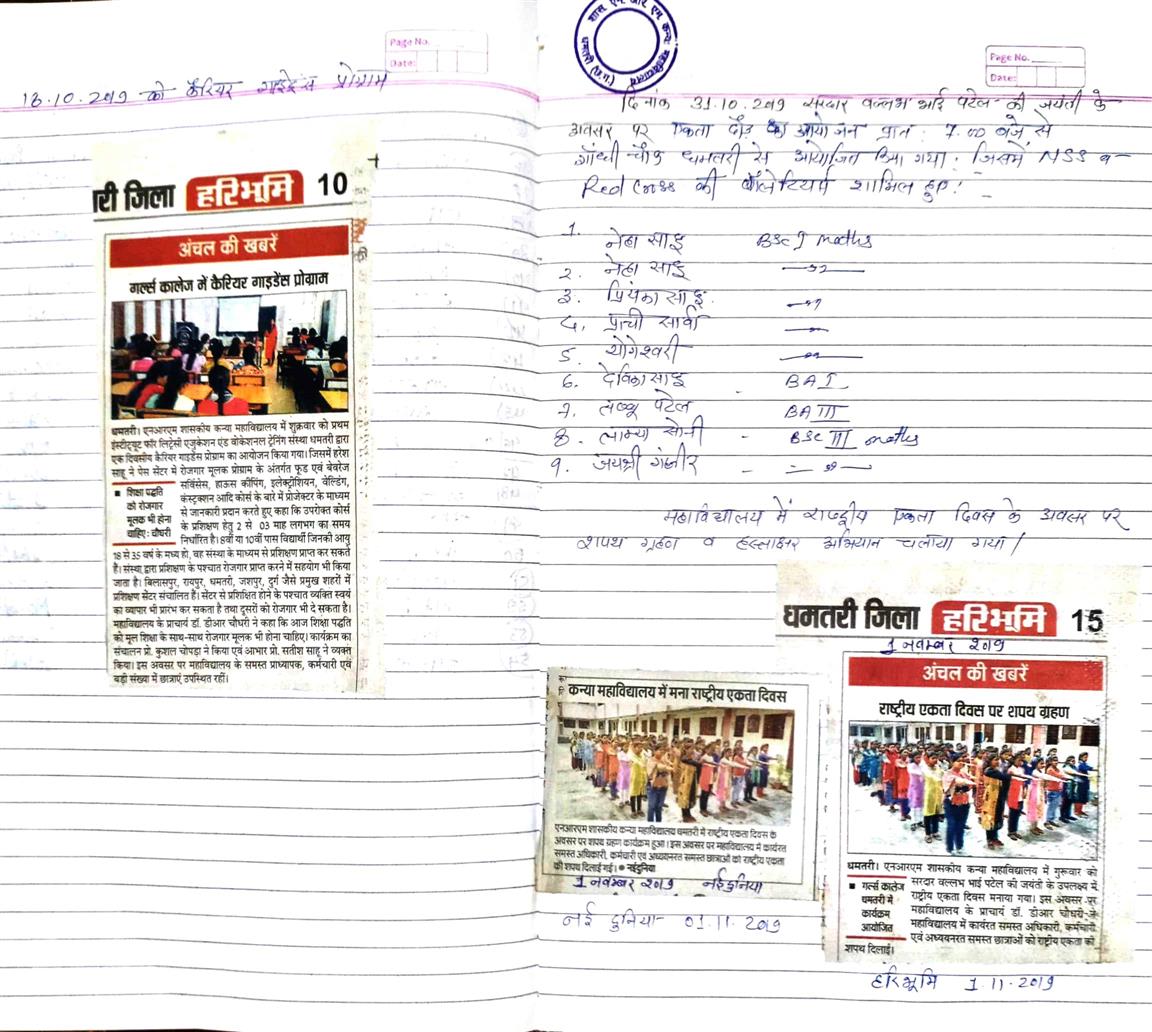 Page No.
Date:
18.10.2019 को कैरियर गाइडेंस प्रोग्राम
री जिला हरिभूमि 10
अंचल की खबरें
गर्ल्स कालेज में कैरियर गाइडेंस प्रोग्राम
धमतरी। एनआरएम शासकीय कन्या महाविद्यालय में शुक्रवार को प्रथम
इंस्टीट्यूट फॉर लिट्रेसी एजुकेशन एंड वोकेशनल ट्रेनिंग संस्था धमतरी द्वारा
एक दिवसीय कैरियर गाइडेंस प्रोग्राम का आयोजन किया गया। जिसमें हरेश
साहू ने ऐस सेंटर में रोजगार मूलक प्रोग्राम के अंतर्गत फूड एवं बेवरेज
सर्विसेस, हाऊस कीपिंग, इलेक्ट्रीशियन, वेल्डिंग,
कंस्ट्रक्शन आदि कोर्स के बारे में प्रोजेक्टर के माध्यम
से जानकारी प्रदान करते हुए कहा कि उपरोक्त कोर्स
के प्रशिक्षण हेतु 2 से 03 माह लगभग का समय
निर्धारित है। 8वीं या 10वीं पास विद्यार्थी जिनकी आयु
■ शिक्षा पद्धति
को रोजगार
मूलक भी होना
चाहिए : चौधरी
18 से 35 वर्ष के मध्य हो, वह संस्था के माध्यम से प्रशिक्षण प्राप्त कर सकते
है। संस्था द्वारा प्रशिक्षण के पश्चात रोजगार प्राप्त करने में सहयोग भी किया
जाता है। बिलासपुर, रायपुर, धमतरी, जशपुर, दुर्ग जैसे प्रमुख शहरों में
प्रशिक्षण सेंटर संचालित हैं। सेंटर से प्रशिक्षित होने के पश्चात व्यक्ति स्वयं
का व्यापार भी प्रारंभ कर सकता है तथा दूसरों को रोजगार भी दे सकता है।
महाविद्यालय के प्राचार्य डॉ. डीआर चौधरी ने कहा कि आज शिक्षा पद्धति
को मूल शिक्षा के साथ-साथ रोजगार मूलक भी होना चाहिए। कार्यक्रम का
संचालन प्रो. कुशल चोपड़ा ने किया एवं आभार प्रो. सतीश साहू ने व्यक्त
किया। इस अवसर पर महाविद्यालय के समस्त प्राध्यापक, कर्मचारी एवं
बड़ी संख्या में छात्राएं उपस्थित रहीं।
शास. एन. आर. एम. कन्या महाविद्यालय
Page No.
Date:
दिनांक 31.10.2019 सरदार वल्लभ भाई पटेल की जयंती के
अवसर पर एकता दौड़ का आयोजन प्रातः 7.00 बजे से
गाँधी चौक धमतरी से आयोजित किया गया। जिसमें NSS व
Red Cross की वॉलेंटियर्स शामिल हुए।
1. नेहा साहू BSc I maths
2. नेहा साहू —"—
3. प्रियंका साहू —"—
4. प्राची सार्वा —"—
5. योगेश्वरी —"—
6. देविका साहू - BA I
7. लच्छू पटेल BA III
8. लाम्या सोनी - BSc III maths
9. जयश्री गंभीर - —"—
महाविद्यालय में राष्ट्रीय एकता दिवस के अवसर पर
शपथ ग्रहण व हस्ताक्षर अभियान चलाया गया।
धमतरी जिला हरिभूमि 15
1 नवम्बर 2019
अंचल की खबरें
राष्ट्रीय एकता दिवस पर शपथ ग्रहण
धमतरी। एनआरएम शासकीय कन्या महाविद्यालय में गुरूवार को
सरदार वल्लभ भाई पटेल की जयंती के उपलक्ष्य में
राष्ट्रीय एकता दिवस मनाया गया। इस अवसर पर
महाविद्यालय के प्राचार्य डॉ. डीआर चौधरी ने
महाविद्यालय में कार्यरत समस्त अधिकारी, कर्मचारी
एवं अध्ययनरत समस्त छात्राओं को राष्ट्रीय एकता की
■ गर्ल्स कालेज
धमतरी में
कार्यक्रम
आयोजित
शपथ दिलाई।
हरिभूमि 1.11.2019
कन्या महाविद्यालय में मना राष्ट्रीय एकता दिवस
एनआरएम शासकीय कन्या महाविद्यालय धमतरी में राष्ट्रीय एकता दिवस के
अवसर पर शपथ ग्रहण कार्यक्रम हुआ। इस अवसर पर महाविद्यालय में कार्यरत
समस्त अधिकारी, कर्मचारी एवं अध्ययनरत समस्त छात्राओं को राष्ट्रीय एकता
की शपथ दिलाई गई। ● नईदुनिया
1 नवम्बर 2019 नईदुनिया
नई दुनिया- 01.11.2019